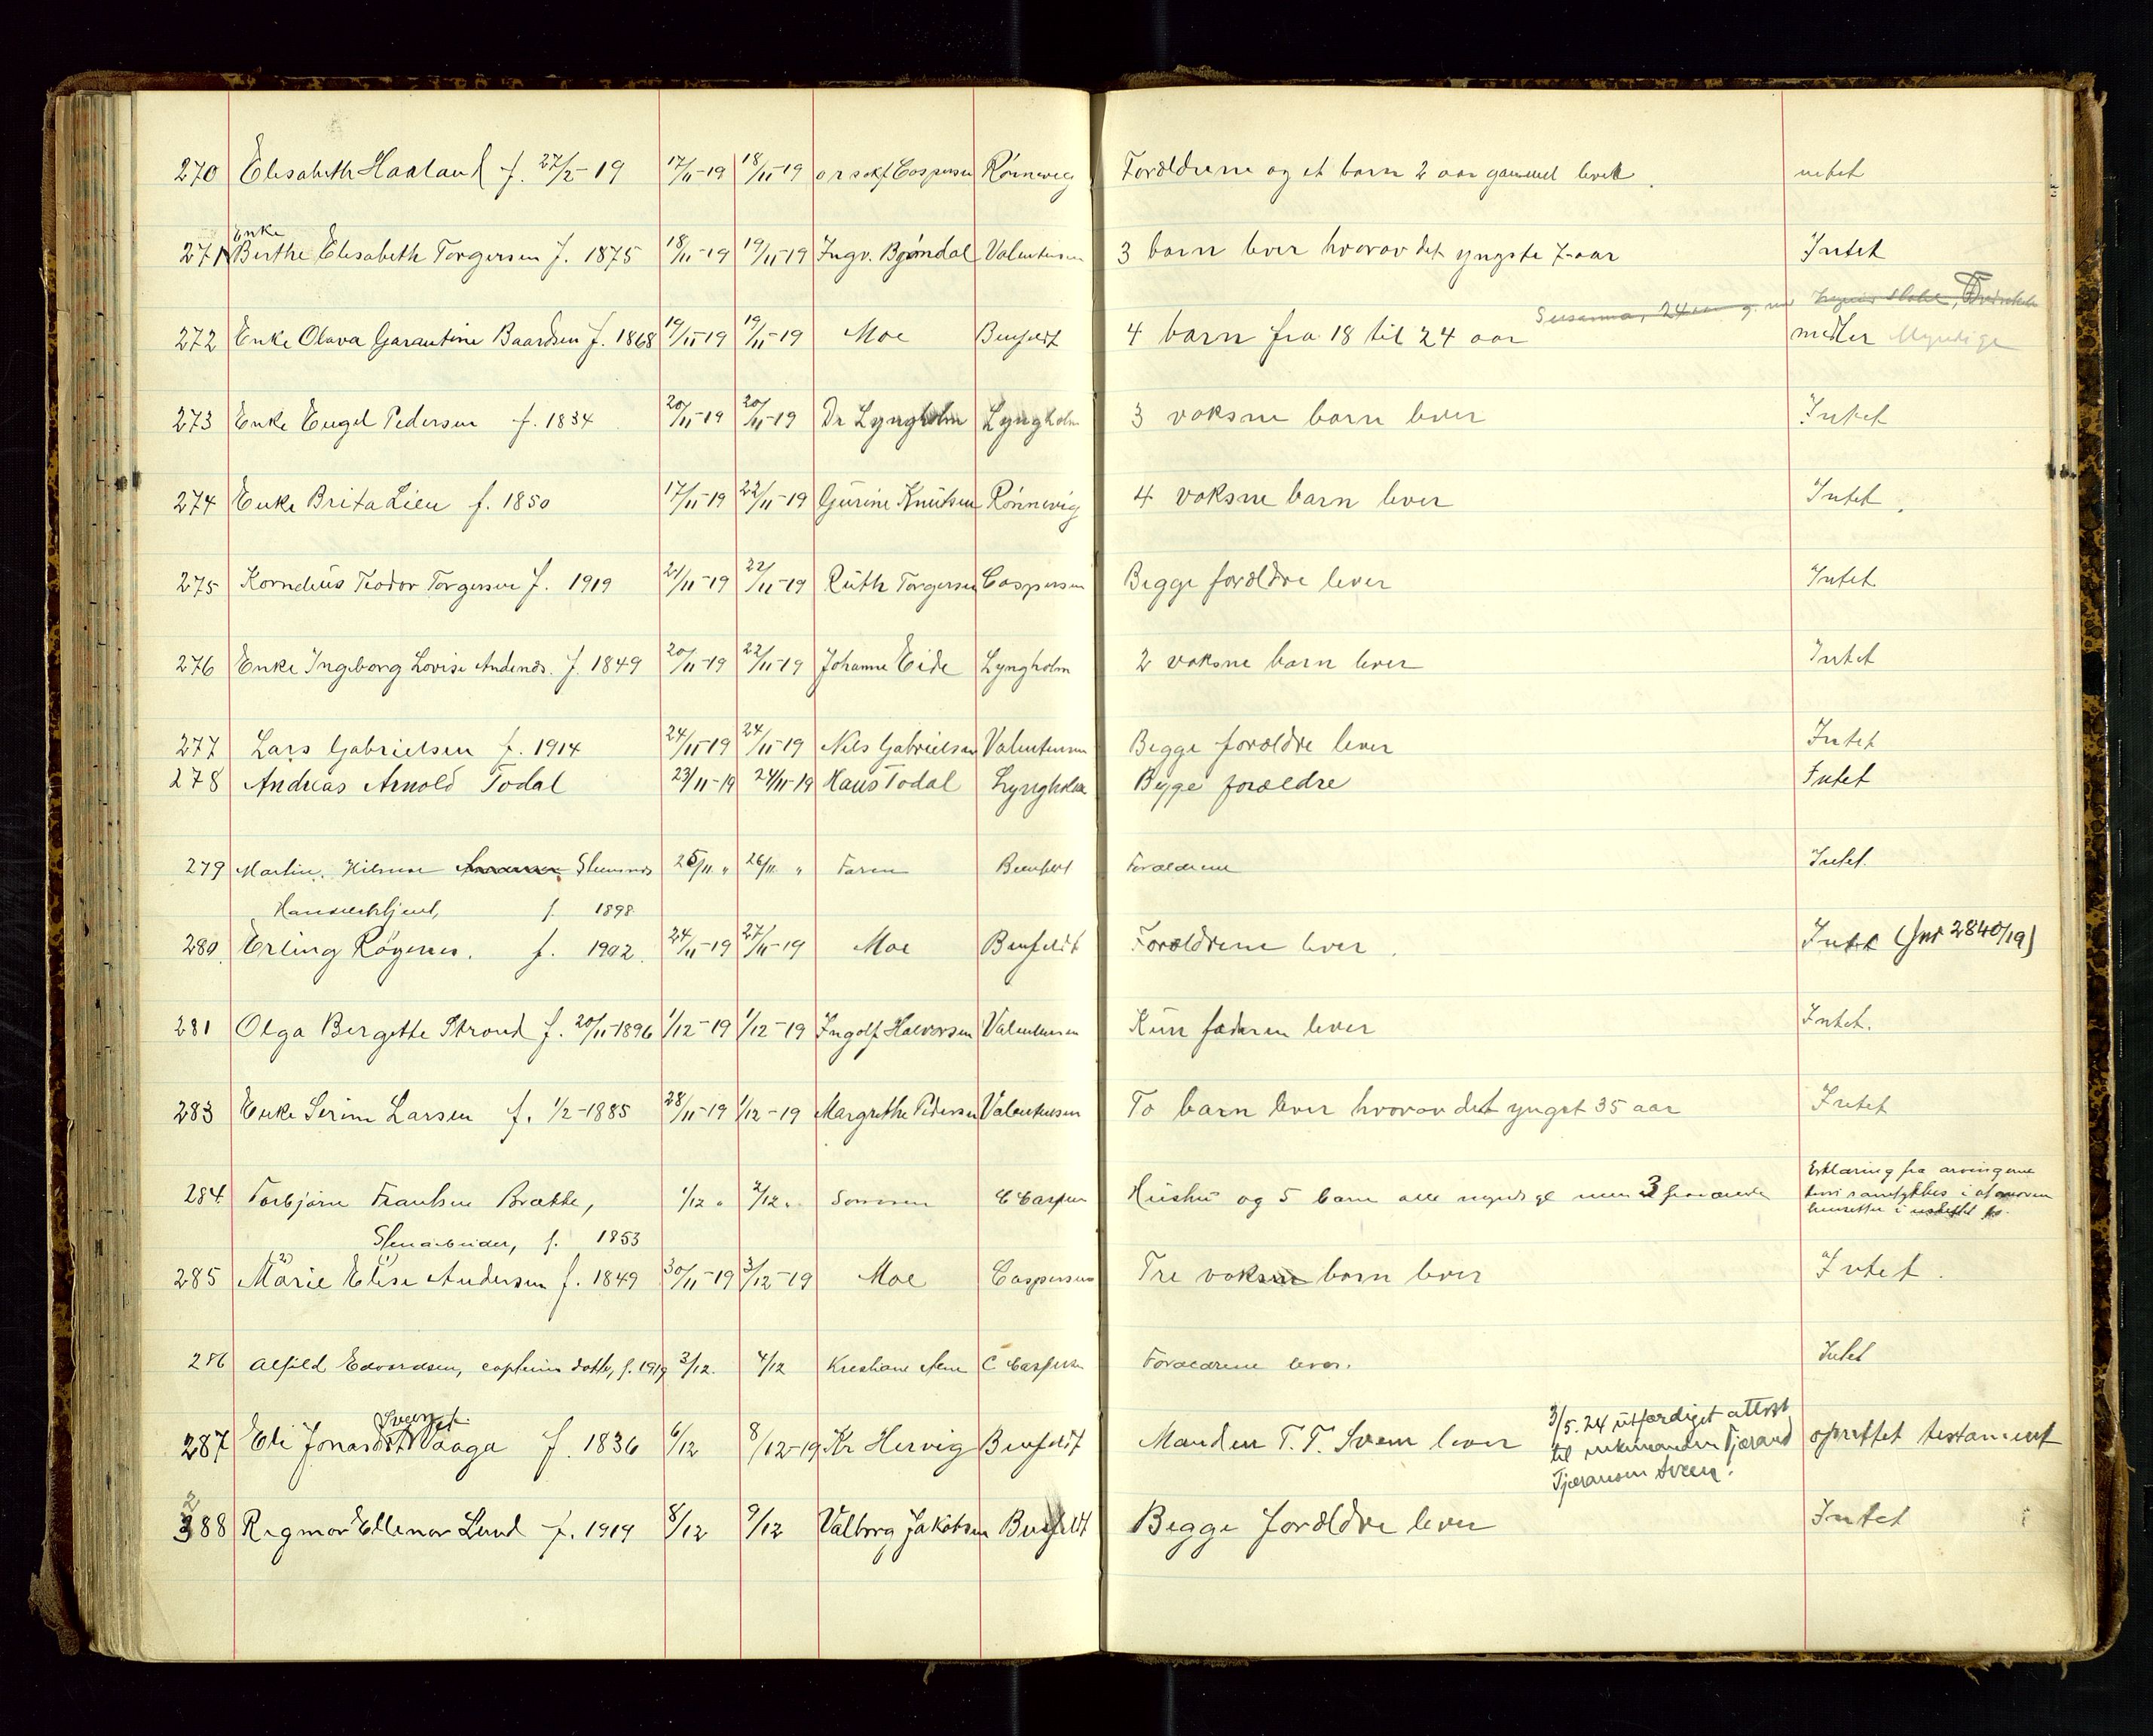 270 Elisabeth Haaland f. 27/2-19 17/11-19 18/11-19 Caspersen Rönnevig Forældrene og et barn 2 aar gammel levet intet
Enke
271 Berthe Elisabeth Torgersen f. 1875 18/11-19 19/11-19 Ingv. Bjöndal Valentinsen 3 barn lever hvorav det yngste 7 aar Intet
Susanna, 24
272 Enke Olava Garantine Baardsen f. 1868 19/11-19 19/11-19 Moe Benfeldt 4 barn fra 18 til 24 aar midler Myndige
273 Enke Engel Pedersen f. 1834 20/11-19 20/11-19 Dr Lyngholm Lyngholm 3 voksne barn lever Intet
274 Enke Brita Lien f. 1850 17/11-19 22/11-19 Gurine Knutsen Rönnevig 4 voksne barn lever Intet.
275 Kornelius Teodor Torgersen f. 1919 21/11-19 22/11-19 Ruth Torgersen Caspersen Begge forældre lever Intet
276 Enke Ingeborg Lovise f. 1849 20/11-19 22/11-19 Johanne Eide Lyngholm 2 voksne barn lever Intet
277 Lars Gabrielsen f. 1914 24/11-19 24/11-19 Nils Gabrielsen Valentinsen Begge forældre lever Intet
278 Andreas Arnold Todal 23/11-19 24/11-19 Hans Todal Lyngholm Begge forældre Intet
279 Martin Hilmar 25/11 " 26/11 " Faren Benfeldt Forældrene Intet.
f. 1898
280. Erling Røgenes. f. 1902. 24/11-19 27/11-19 Moe Benfeldt Forældrene lever. Intet (Jnr 2840/19)
281 Olga Bergette Strand f. 20/11-1896 1/12-19 1/12-19 Ingolf Halvorsen Valentinsen Kun faderen lever Intet.
283 Enke Serine Larsen f. 1/2-1885 28/11-19 1/12-19 Margrethe Pedersen Valentinsen To barn lever hvorav det yngst 35 aar Intet
Erklæring fra arvingerne
284. Torbjörn Frantsen Brætte, 1/12 " 2/12 " Sönnen C Caspersen Hustru og 5 barn alle myndige
Stenarbeider, f. 1853
285 Marie Elise Andersen f. 1849 30/11-19 3/12-19 Moe Caspersen Tre voksne barn lever Intet.
286 Alfild Edvardsen, f. 1919 3/12. 4/12 C Caspersen Forældrene lever. Intet
Sveen
287 Eli Jonasdt Vaaga f. 1836 6/12 8/12-19 Kr Hervig Benfeldt Manden T. T. Sveen lever oprettet testament
3/5.24 utfærdiget attest
til enkemanden Tjærand
Tjæransen Sveen.
288 Rigmor Ellenor Lund f. 1919 8/12 9/12 Valborg Jakobsen Benfeldt Begge forældre lever Intet